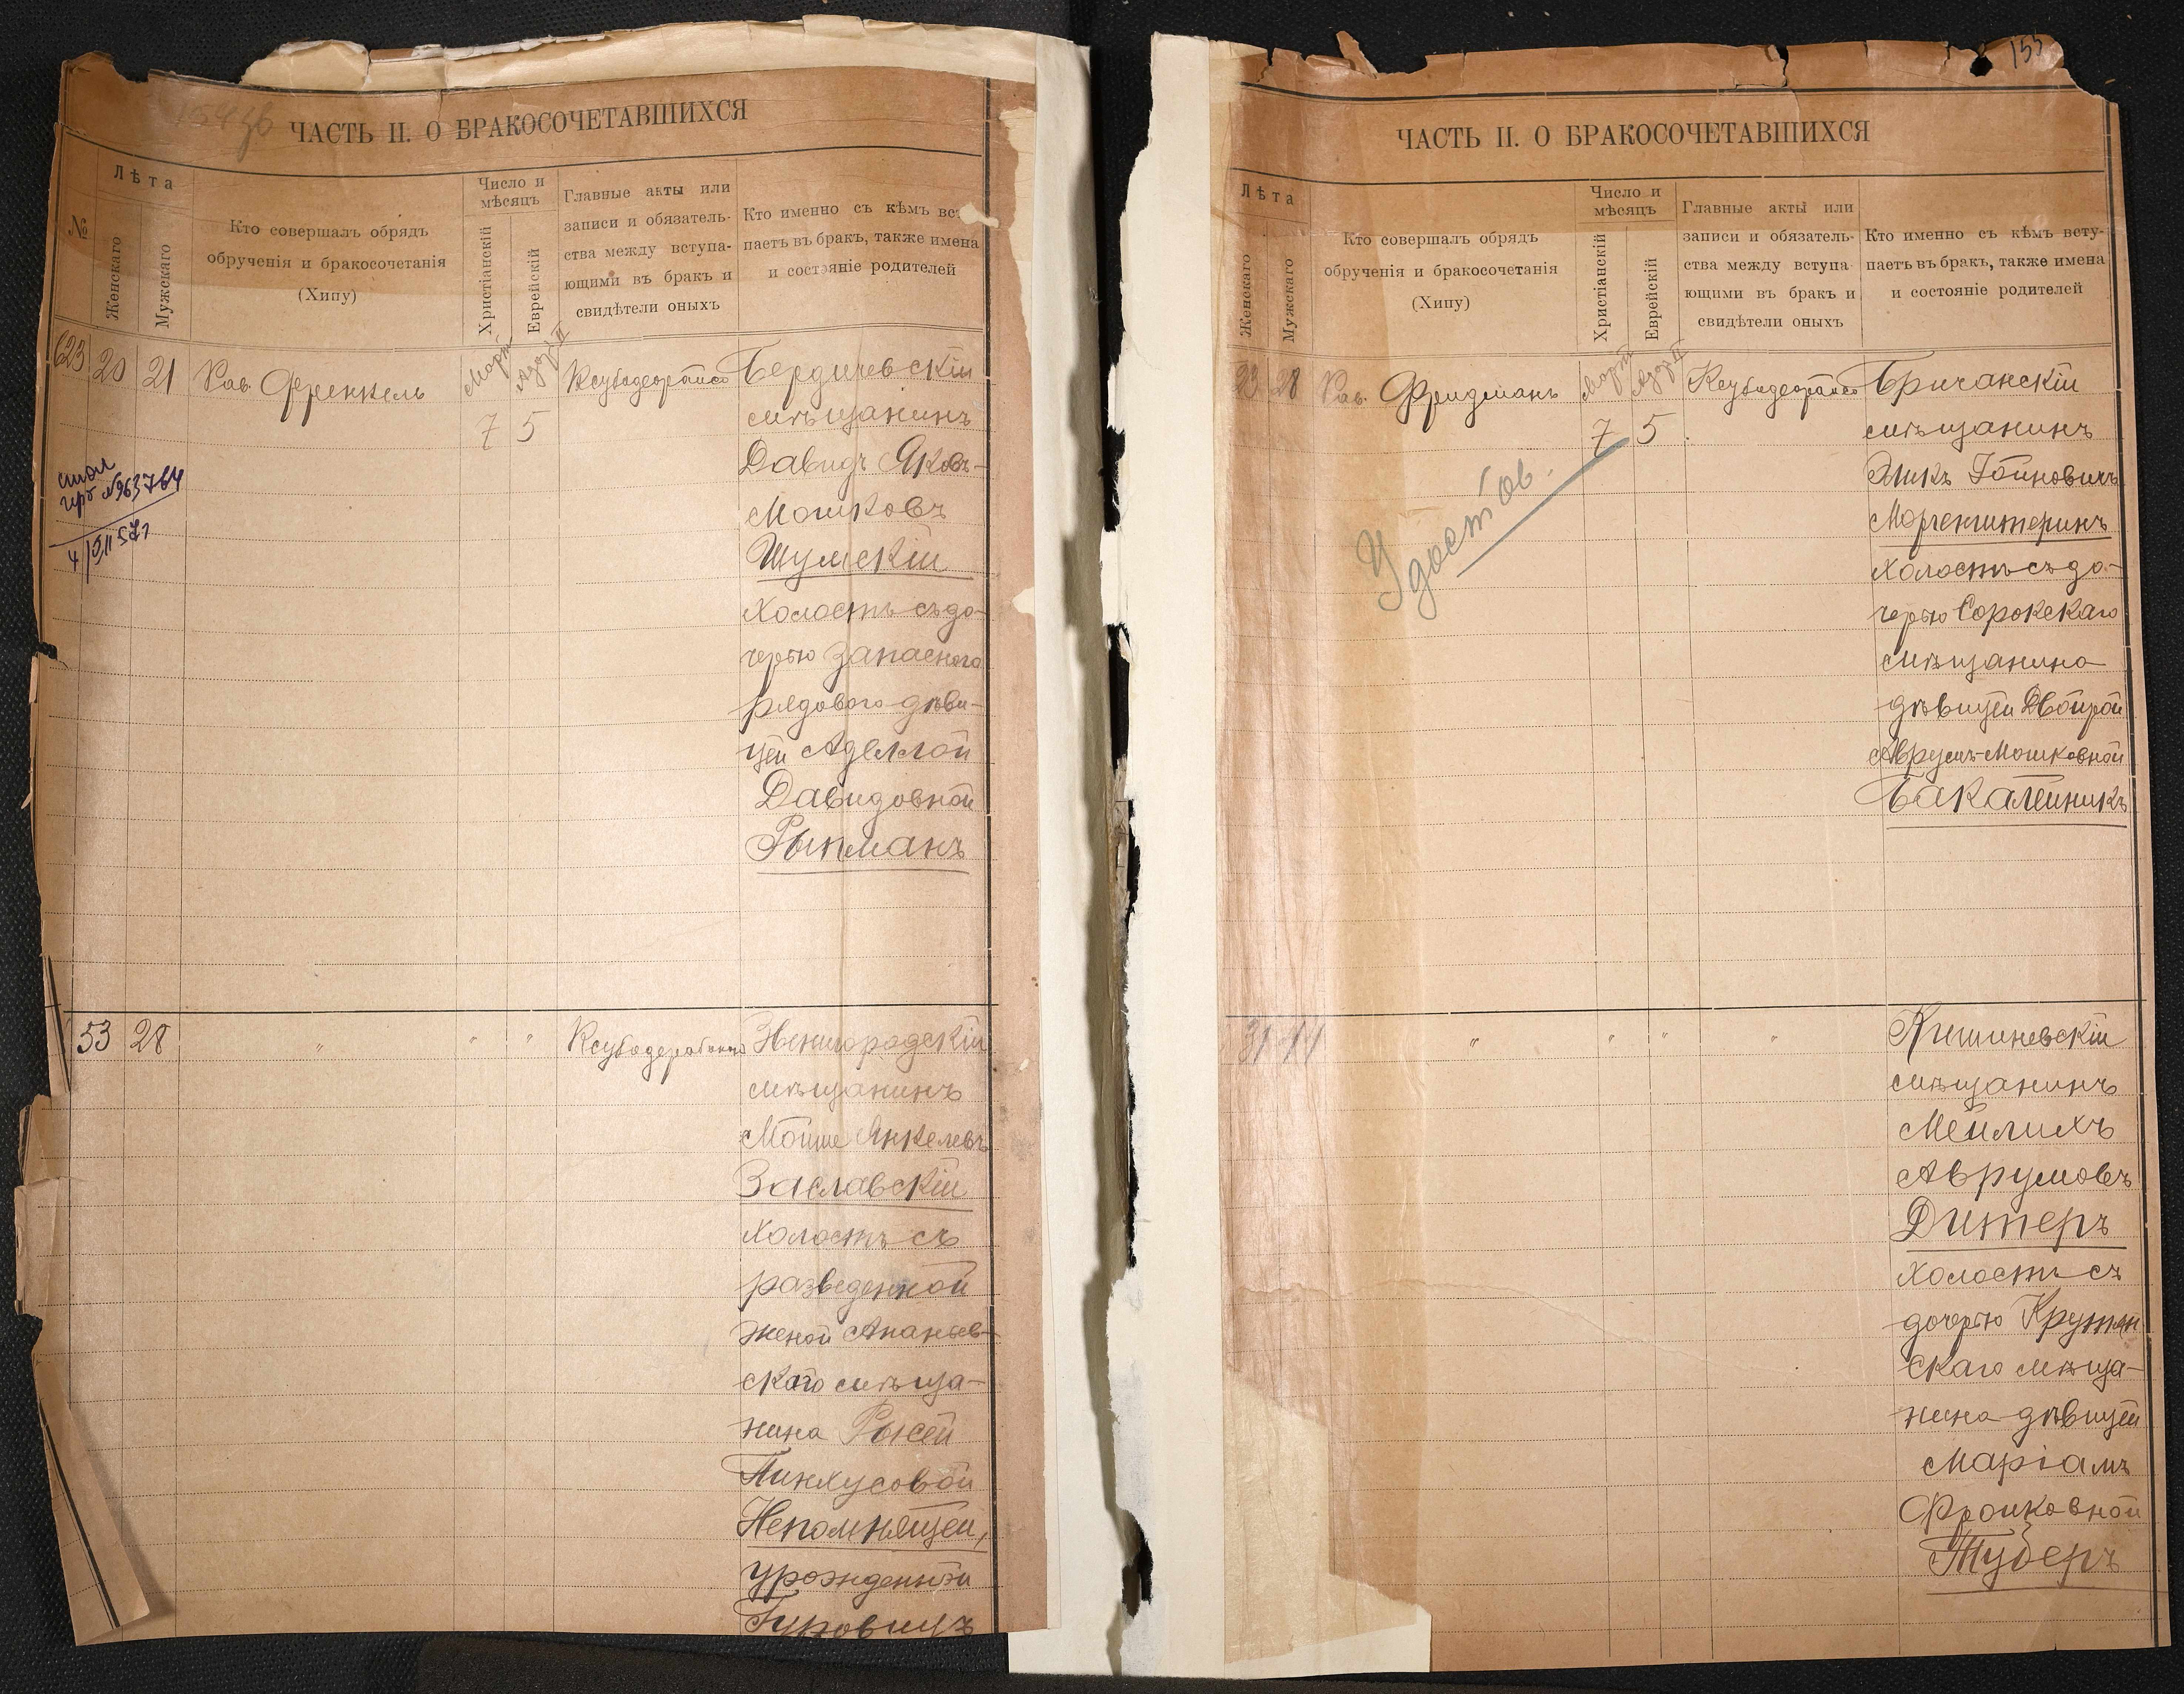 ЧАСТЬ II. О БРАКОСОЧЕТАВШИХСЯ
№
Лѣта
Женскаго
Мужскаго
Кто совершалъ обрядъ
обрученія и бракосочетанія
(Хипу)
Число и
мѣсяцъ
Христіанскій
Еврейскій
Главные акты или
записи и обязатель-
ства между вступа-
ющими въ бракъ и
свидѣтели оныхъ
Кто именно съ кѣмъ всту
паетъ въ бракъ, также имена
и состояніе родителей
623 20 21 Рав. Френкель
Мартъ Адаръ II
7 5
Бердичевскій
мѣщанинъ
Давидъ Яковъ-
Мошковъ
Шумскій
холостъ съ до-
черью запаснаго
рядового дѣви-
цей Аделлой
Давидовной
Рыпманъ
4/VII 57 г
53 28 " " "
Звенигородскій
мѣщанинъ
Мойше Янкелевъ
Заславскій
холостъ съ
разведенной
женой Ананьев-
скаго мѣща-
нина Рысей
Пинхусовой
Непомнящей,
урожденной
Гуровицъ
155
ЧАСТЬ II. О БРАКОСОЧЕТАВШИХСЯ
Лѣта
Женскаго
Мужскаго
Кто совершалъ обрядъ
обрученія и бракосочетанія
(Хипу)
Число и
мѣсяцъ
Христіанскій
Еврейскій
Главные акты или
записи и обязатель-
ства между вступа
ющими въ бракъ и
свидѣтели оныхъ
Кто именно съ кѣмъ всту-
паетъ въ бракъ, также имена
и состояніе родителей
23 28 Рав. Фридманъ
Мартъ Адаръ II
7 5
Удостов.
Бричанскій
мѣщанинъ
Эликъ Іойновичъ
Моргенштернъ
холостъ съ до-
черью Сорокскаго
мѣщанина
дѣвицей Двойрой
Аврумъ-Мошковной
Бакалейникъ
31 " " " "
Кишиневскій
мѣщанинъ
Мейлихъ
Аврумовъ
Дитеръ
холостъ съ
дочерью Крутян
скаго мѣща-
нина дѣвицей
Маріамъ
Фроиковной
Туберъ